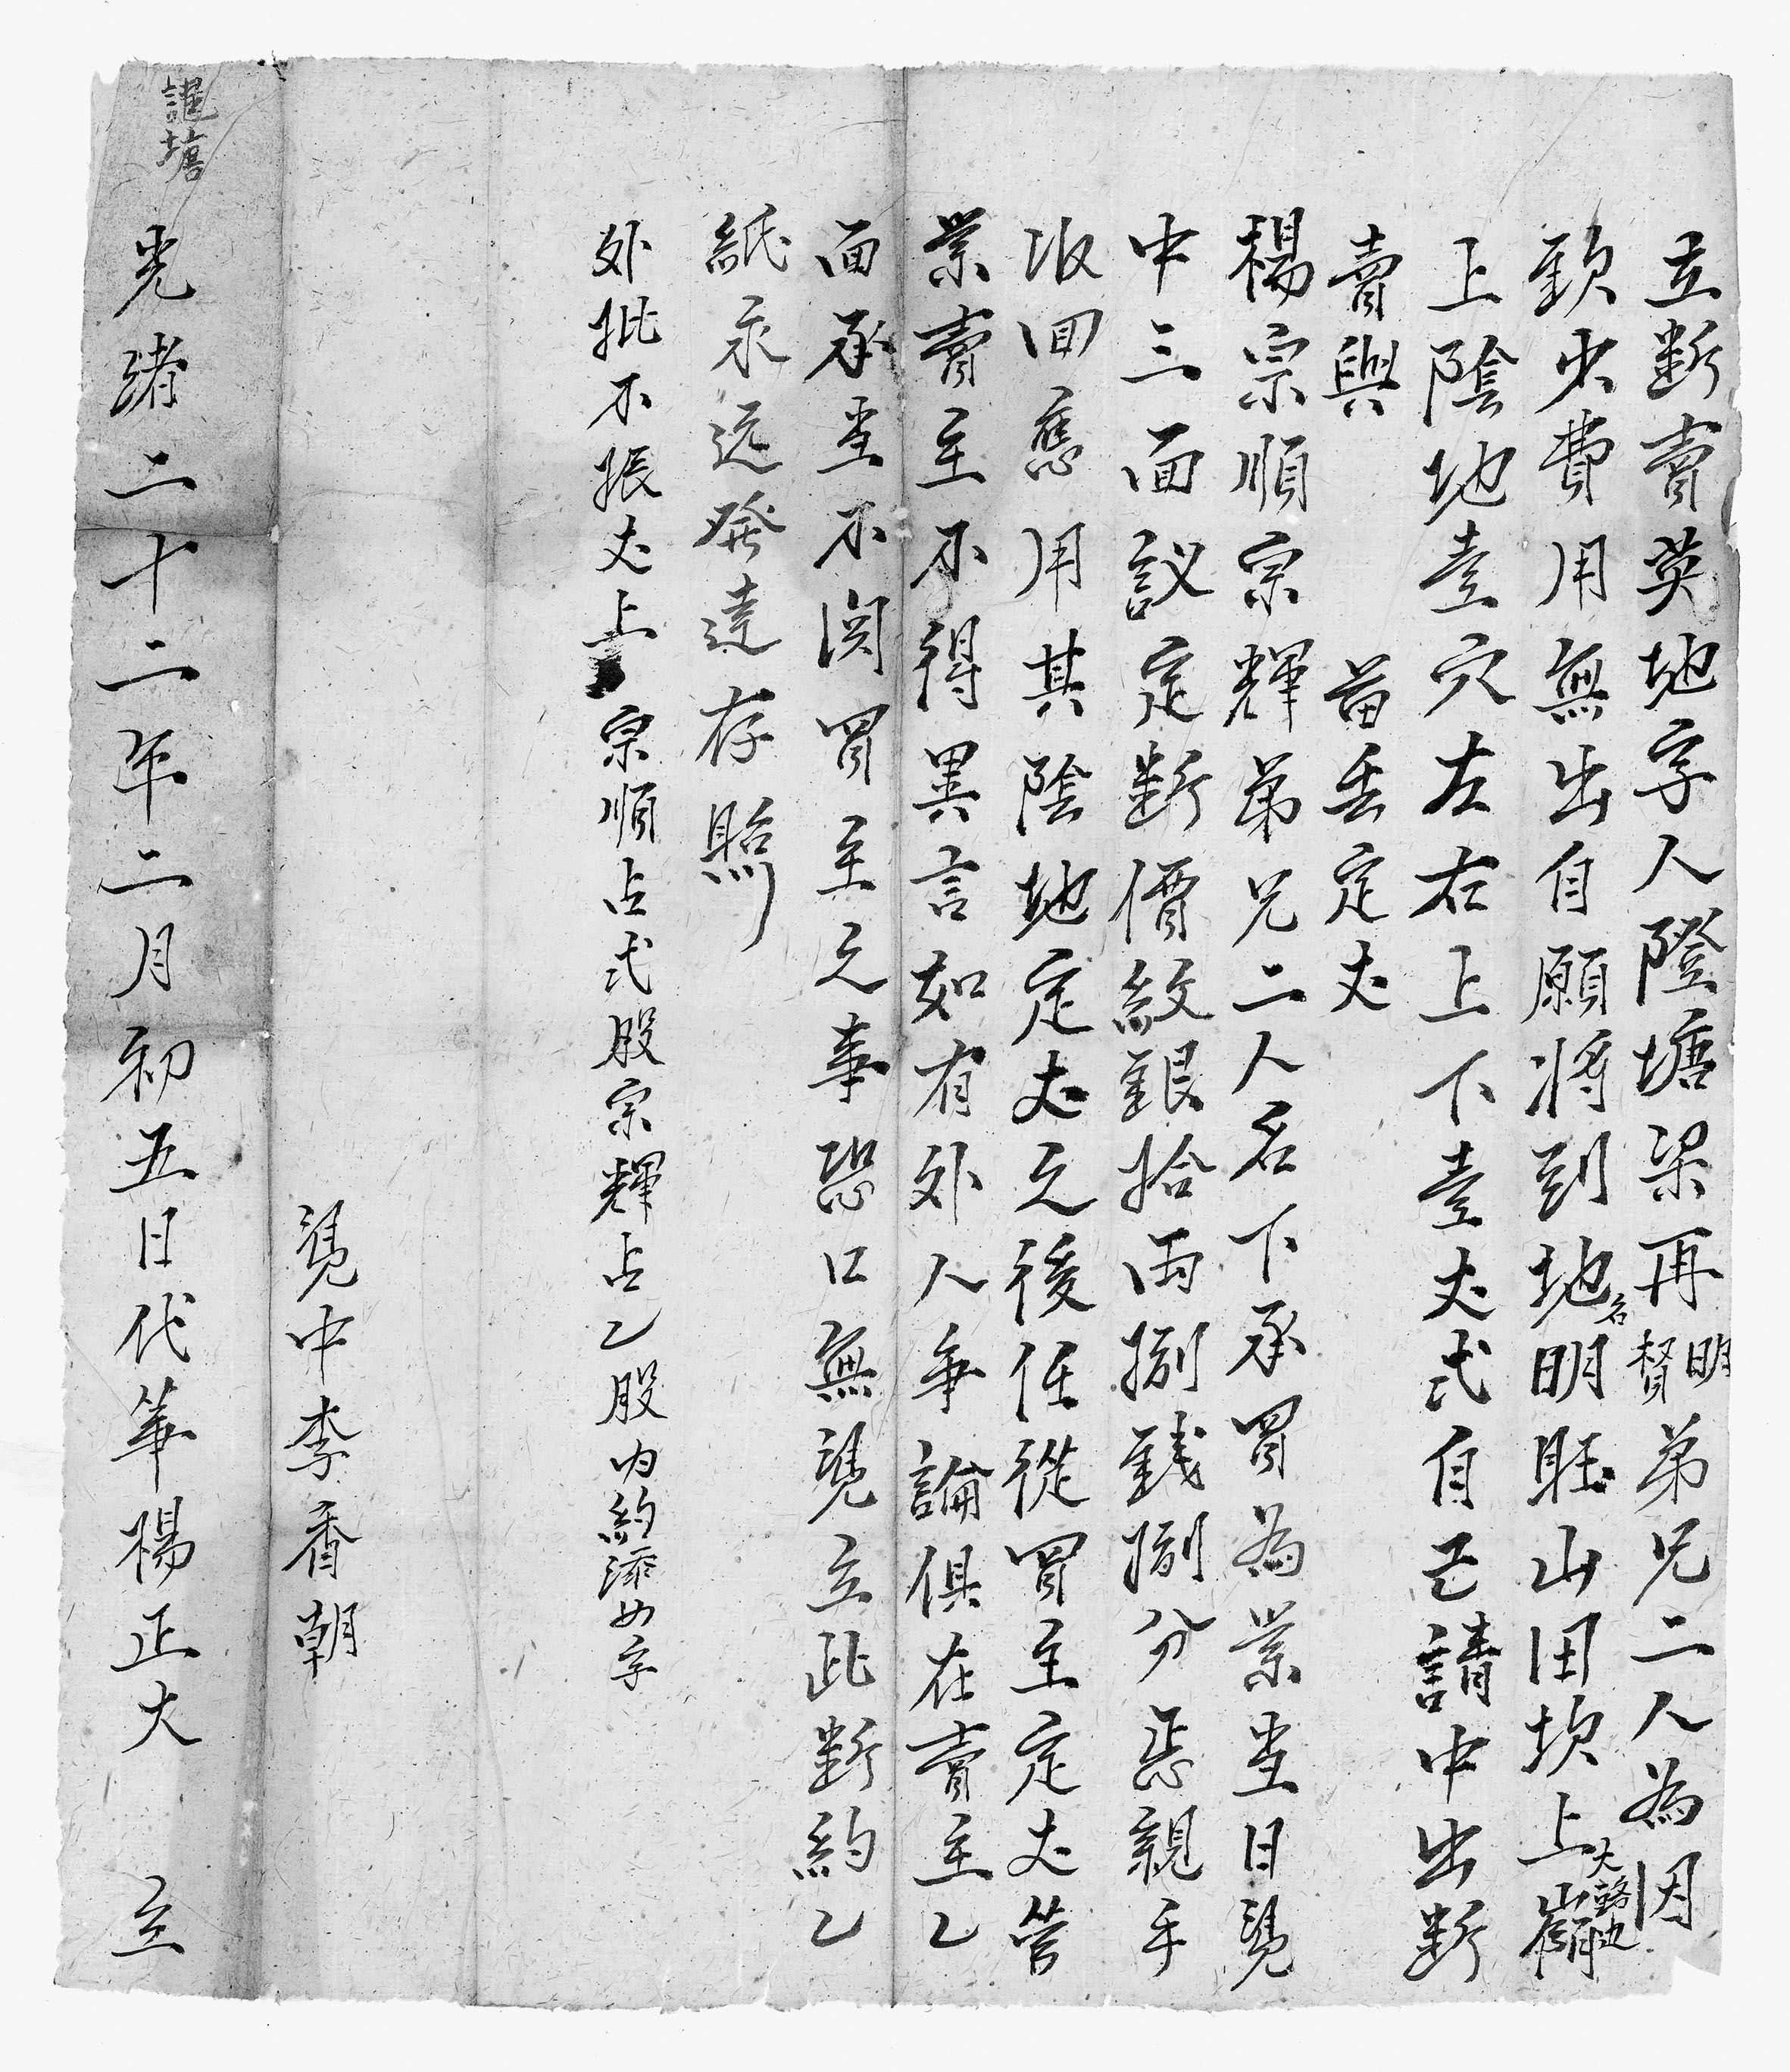 立断賣英地字人隥塘梁再明賢弟兄二人為因
欽少費用無出自願將到地名明盰山田坎上大路
上陰地壹穴左右上下壹丈弍自己請中出断
賣與 苗丢定丈
楊宗順宗輝弟兄二人名下承買為業當日凴
中三面議定断價紋銀拾両捌錢捌分悉親手
收回應用其陰地定丈之後任從買主定丈管
業賣主不得異言如有外人争論俱在賣主乙
面承當不関買主之事恐口無凴立此断約乙
紙永远發達存照
外批不振丈上宗順占弍股宗輝占乙股内約添四字
凴中李香朝
光緒二十二年二月初五日代筆楊正大 立
塘